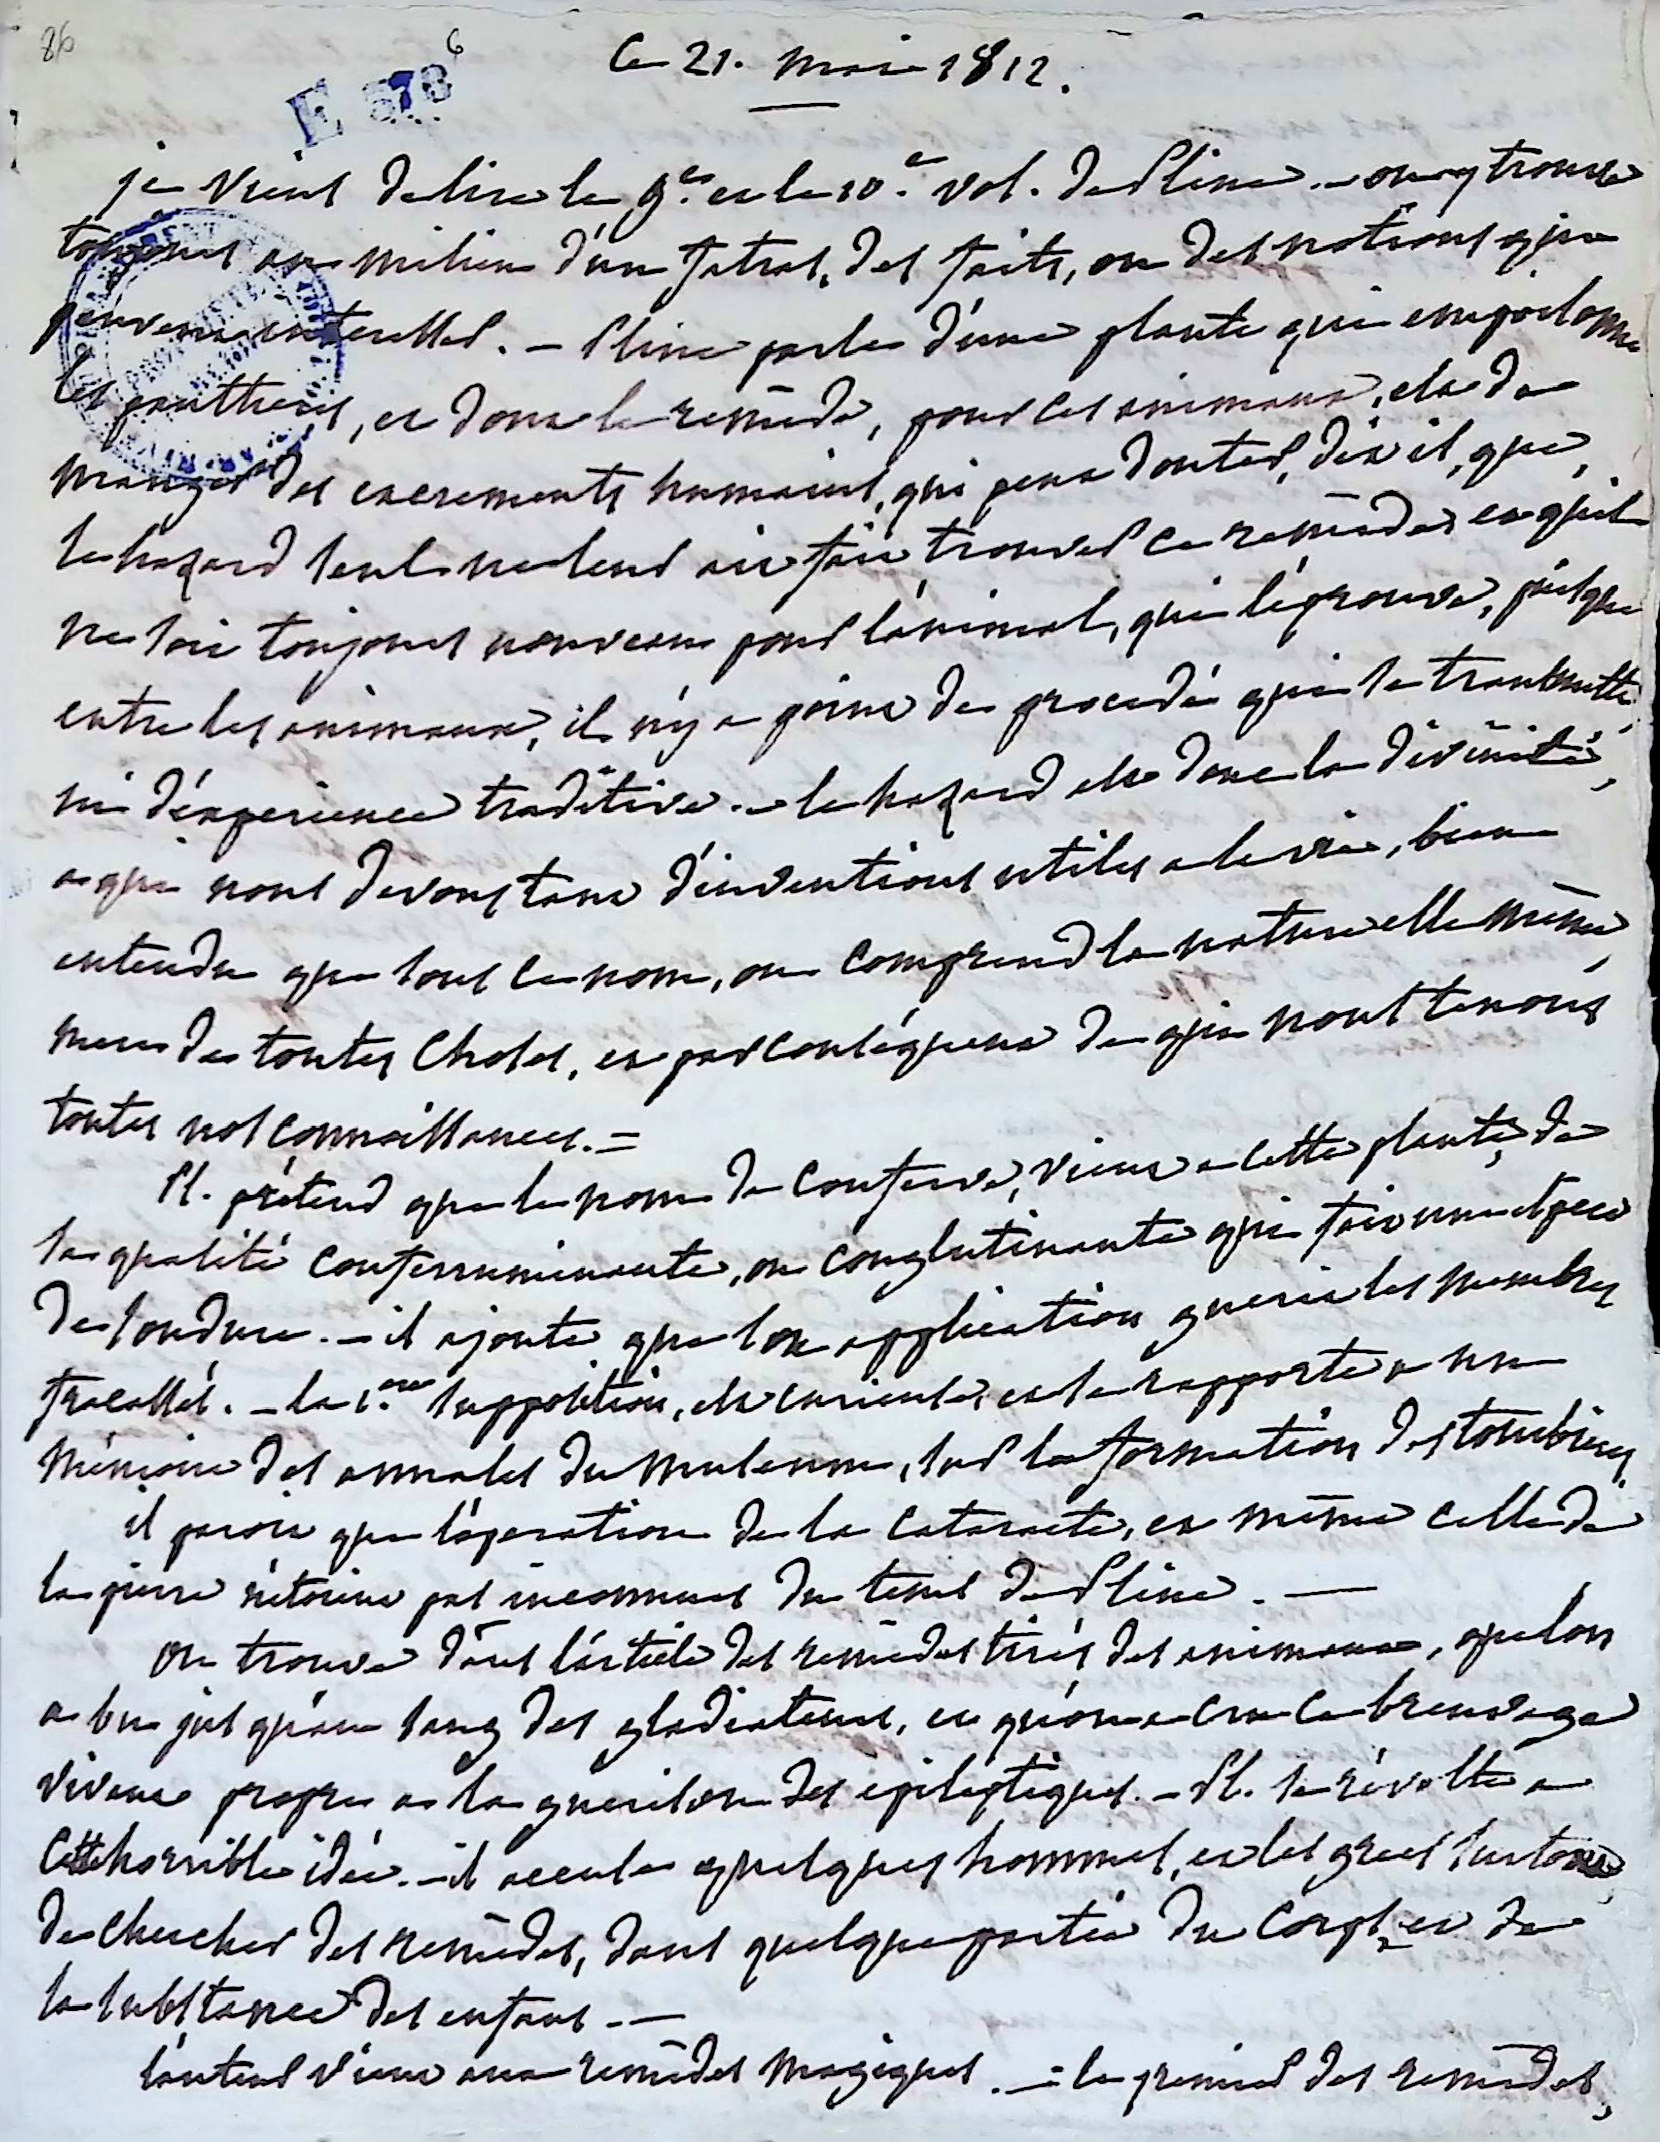 86
6
E 378
Ce 21. mai 1812.
je viens de lire le 9.e et le 10.e vol. de Pline. - on y trouve
toujours au milieu d'un fatras, des faits, ou des notions qui
peuvent interesser. - Pline parle d'une plante qui empoisonne
les panthères, et dont le remède, pour ces animaux, est de
manger des excrements humains, qui peut douter, dit il, que
le hazard seul ne leur ait fait trouver ce remède, et qu'il
ne soit toujours nouveau pour l'animal, qui l'éprouve, puisque
entre les animaux, il n'y a point de procedé qui se transmette,
ni d'experience traditive. - le hazard est donc la divinité,
a qui nous devons tant d'inventions utiles a la vie, bien
entendu que sous ce nom, on comprend la nature elle même,
mere de toutes choses, et par conséquent de qui nous tenons
toutes nos connaissances. =
Pl. prétend que le nom de conferve, vient a cette plante, de
sa qualité conferruminante, ou conglutinante qui fait une espece
de soudure. - il ajoute que son application guerit les membres
fracassés. - la 1.ere supposition, est curieuse, et se rapporte a un
mémoire des annales du museum, sur la formation des tourbieres.
il paroit que l'operation de la cataracte, et même celle de
la pierre n'étoient pas inconnues du tems de Pline. -
On trouve dans l'article des remèdes tirés des animaux, que l'on
a bu jusqu'au sang des gladiateurs, et qu'on a cru ce breuvage
vivant propre a la guerison des epileptiques. - Pl. se révolte a
cette horrible idée. - il accuse quelques hommes, et les grecs surtout,
de chercher des remèdes, dans quelque partie du corps, et de
la substance des enfans. -
l'auteur vient aux remèdes magiques. - = le premier des remèdes,